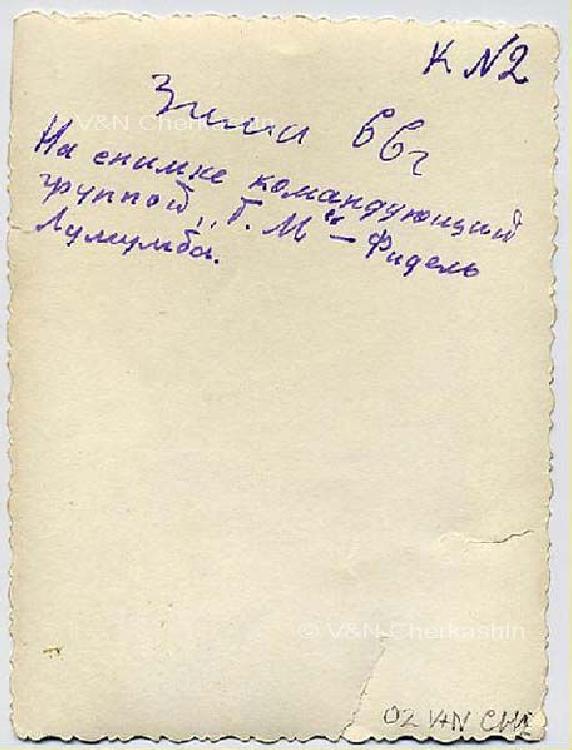 К №2
Зима 66г
На снимке командующий
группой „Т. М" – Фидель
Лумумба.
V&N Cherkashin
© V&N Cherkashin
02 V+N CHE